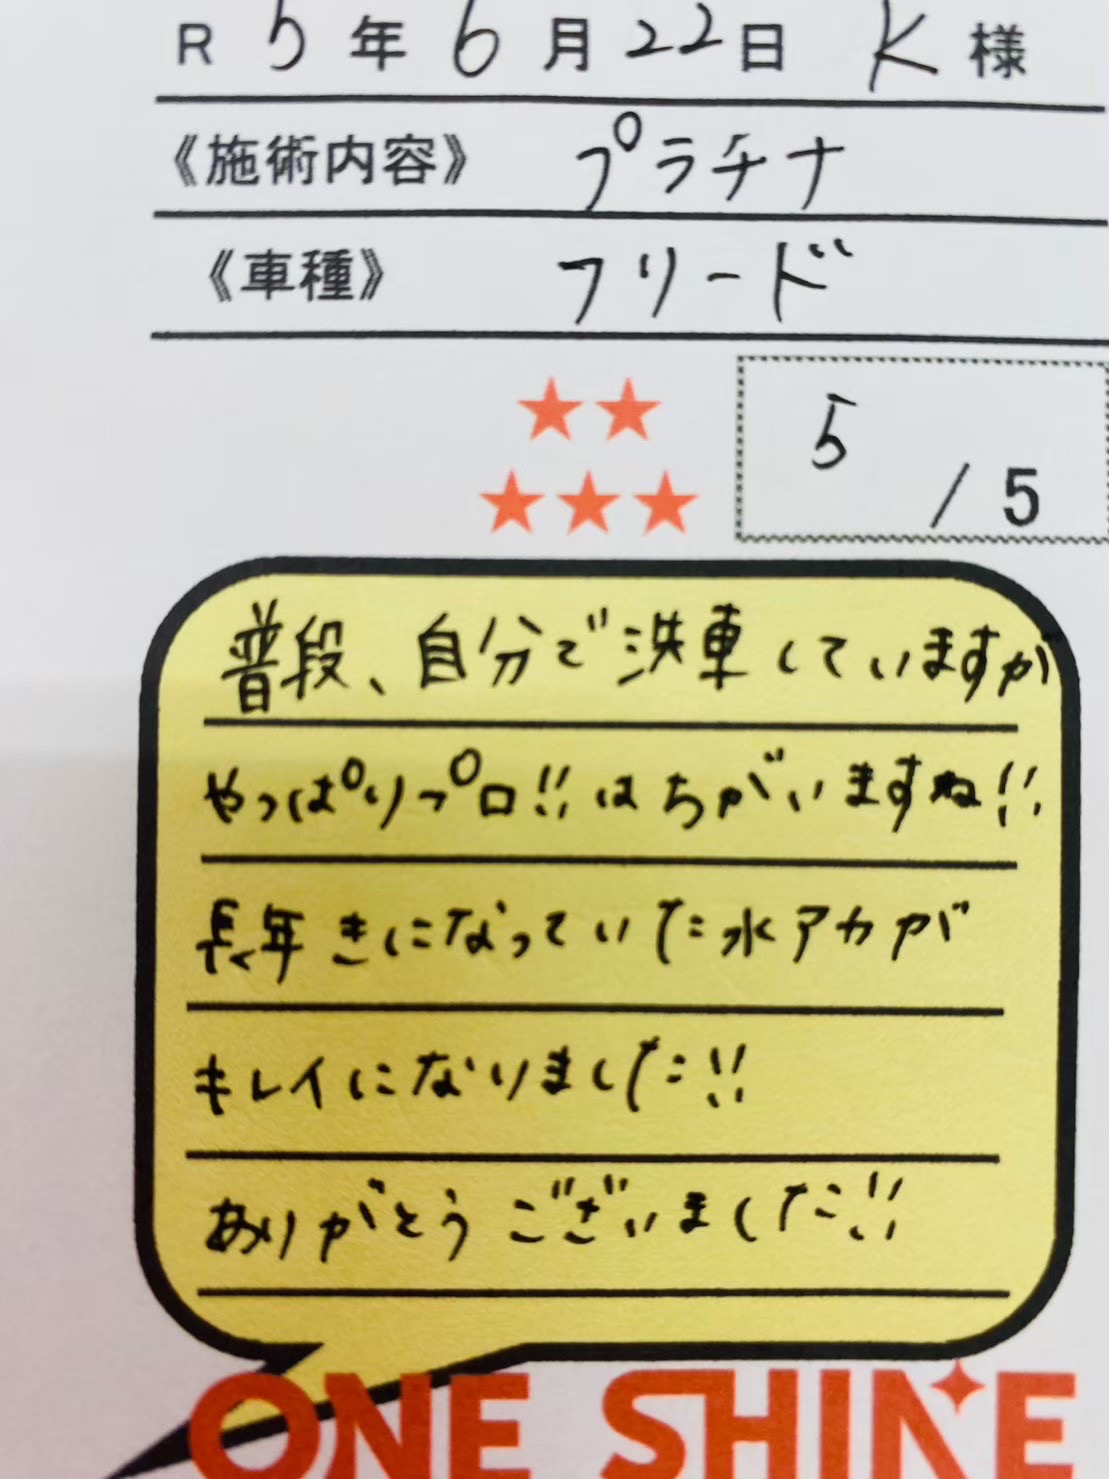 R 5年 6月 22日 K様
《施術内容》 プラチナ
《車種》 フリード
★★
★★★
5 / 5
普段、自分で洗車していますが
やっぱりプロ!!はちがいますね!!
長年きになっていた水アカが
キレイになりました!!
ありがとうございました!!
ONE SHINE